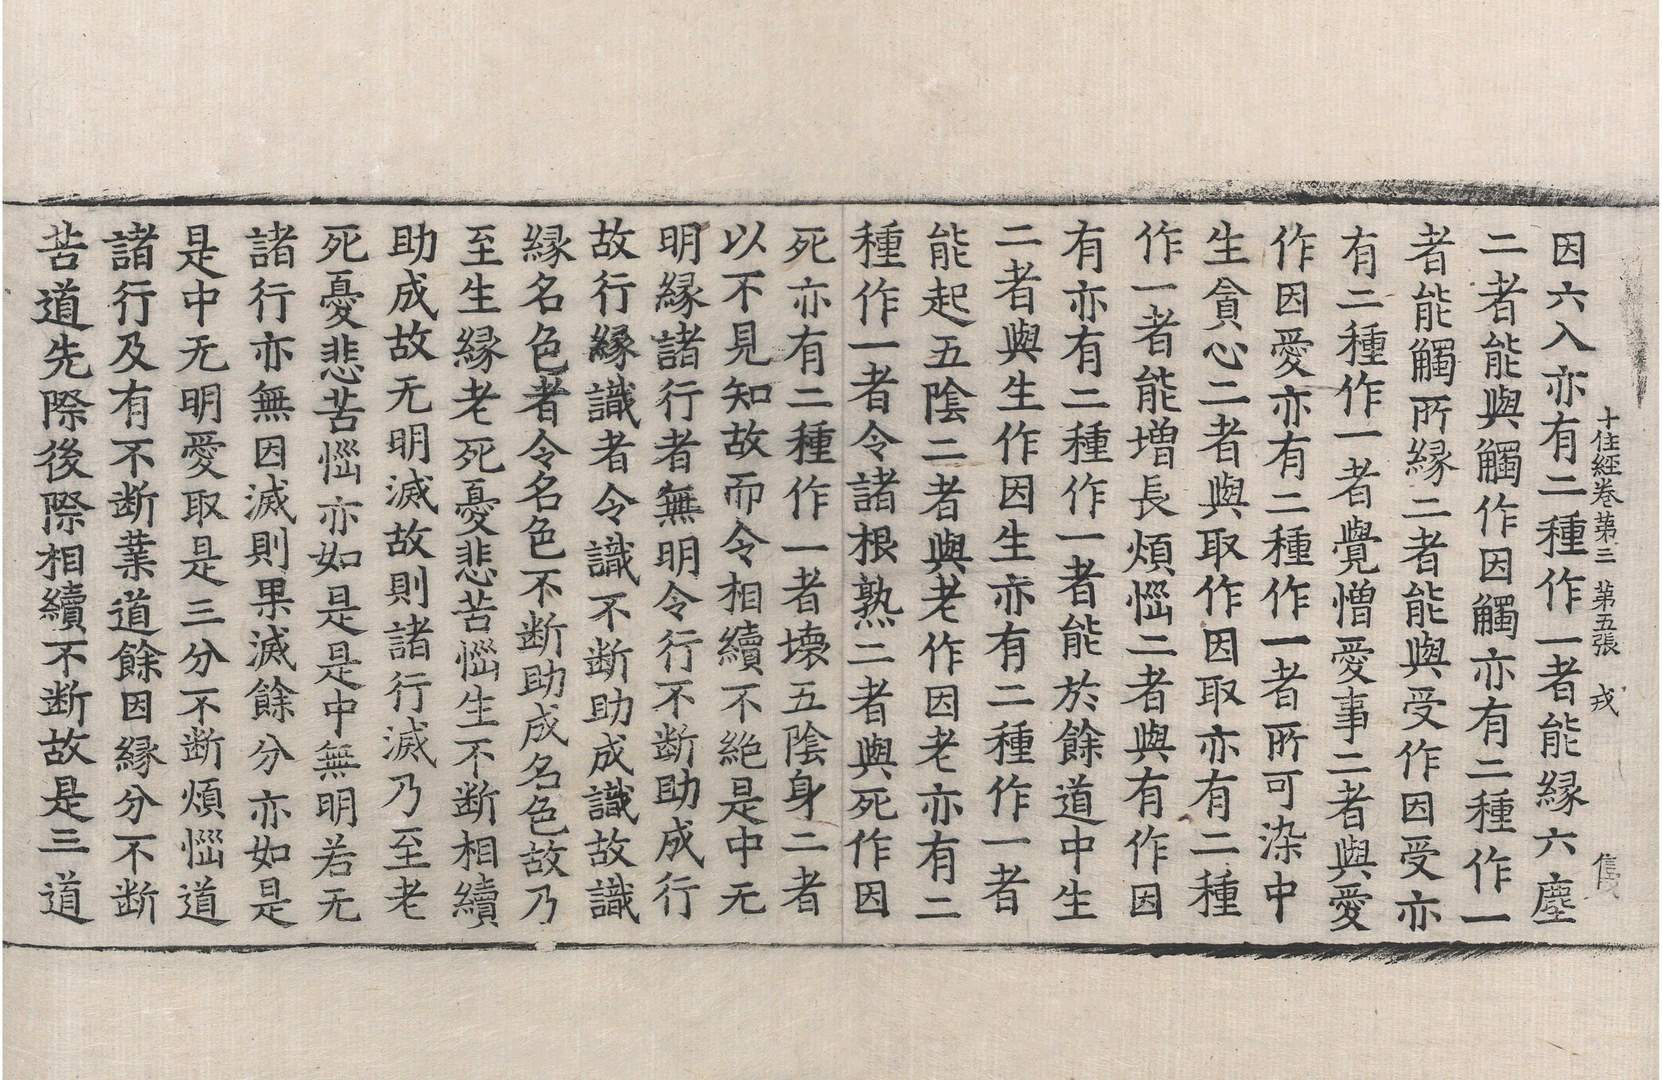 十住經卷第三　第五張　戎　隻
因六入亦有二種作一者能緣六塵
二者能與觸作因觸亦有二種作一
者能觸所緣二者能與受作因受亦
有二種作一者覺憎愛事二者與愛
作因愛亦有二種作一者所可染中
生貪心二者與取作因取亦有二種
作一者能增長煩惱二者與有作因
有亦有二種作一者能於餘道中生
二者與生作因生亦有二種作一者
能起五陰二者與老作因老亦有二
種作一者令諸根熟二者與死作因
死亦有二種作一者壞五陰身二者
以不見知故而令相續不絕是中无
明緣諸行者無明令行不斷助成行
故行緣識者令識不斷助成識故識
緣名色者令名色不斷助成名色故乃
至生緣老死憂悲苦惱生不斷相續
助成故无明滅故則諸行滅乃至老
死憂悲苦惱亦如是是中無明若无
諸行亦無因滅則果滅餘分亦如是
是中无明愛取是三分不斷煩惱道
諸行及有不斷業道餘因緣分不斷
苦道先際後際相續不斷故是三道